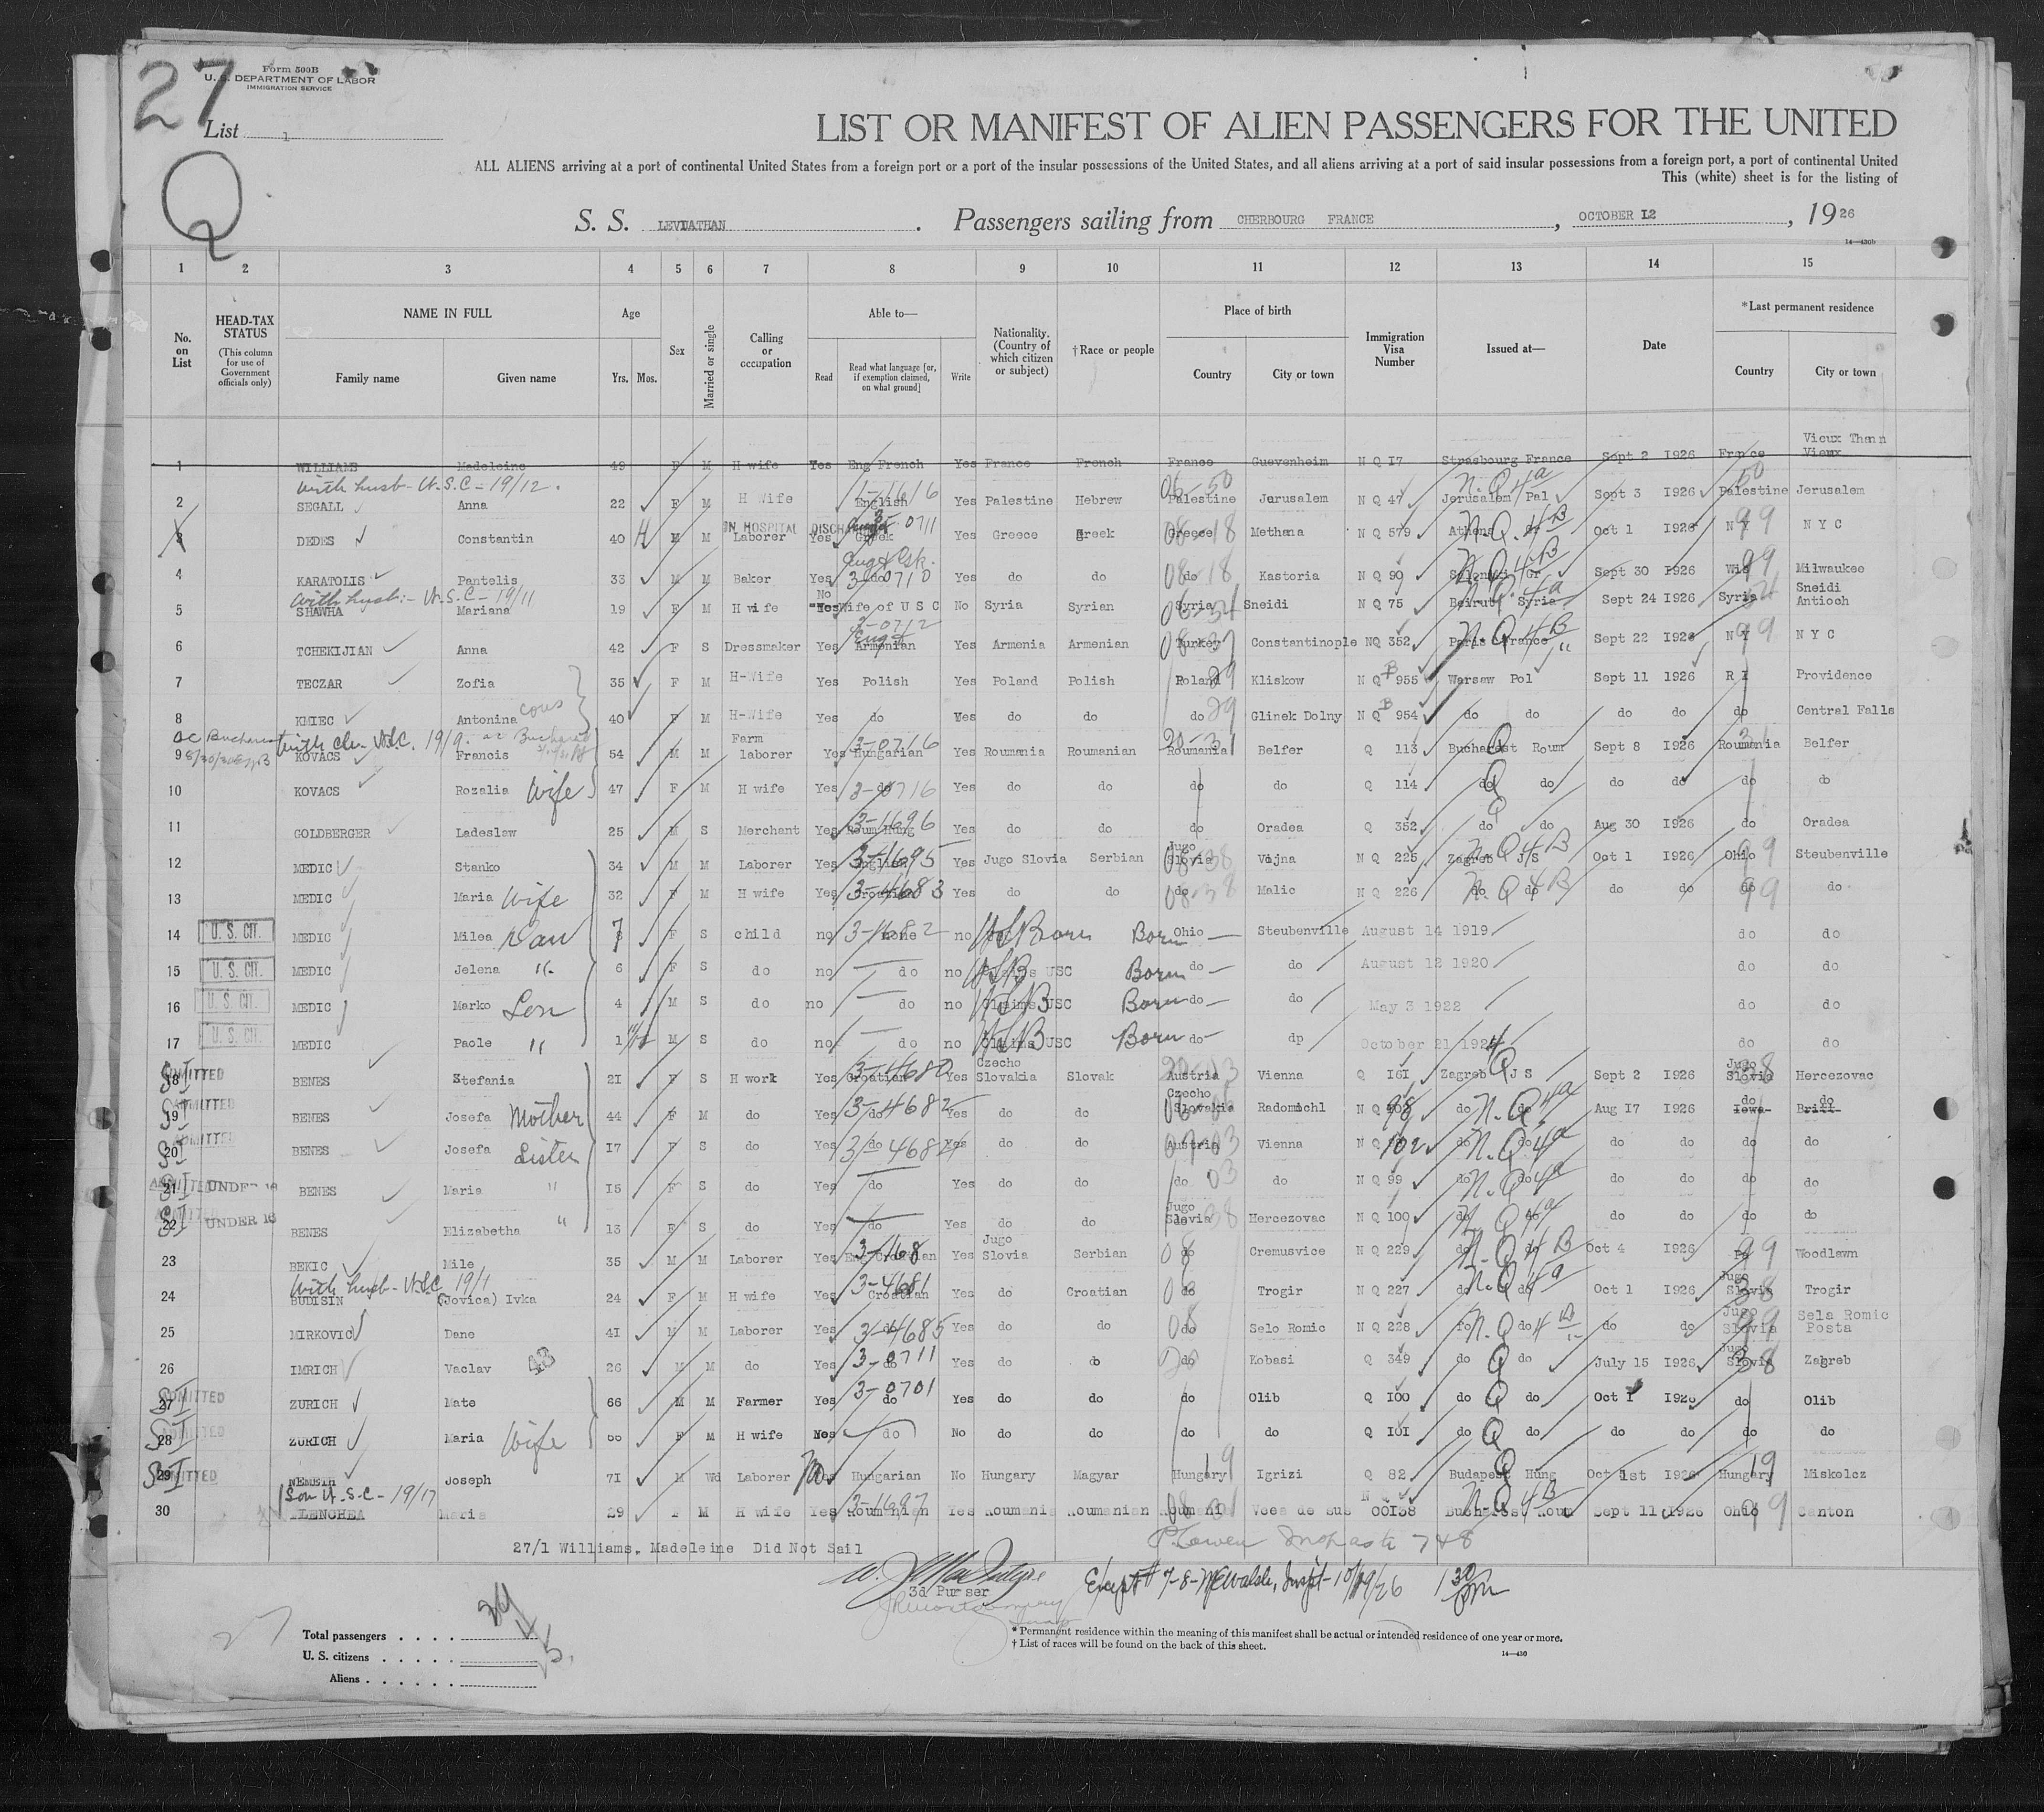 27
Form 500B
U. S. DEPARTMENT OF LABOR
IMMIGRATION SERVICE
List 1
Q
LIST OR MANIFEST OF ALIEN PASSENGERS FOR THE UNITED
ALL ALIENS arriving at a port of continental United States from a foreign port or a port of the insular possessions of the United States, and all aliens arriving at a port of said insular possessions from a foreign port, a port of continental United
This (white) sheet is for the listing of
S. S. LEVIATHAN. Passengers sailing from CHERBOURG FRANCE, OCTOBER 12, 1926
14—430b
1 2 3 4 5 6 7 8 9 10 11 12 13 14 15
No. on List HEAD-TAX STATUS (This column for use of Government officials only) NAME IN FULL Family name Given name Age Yrs. Mos. Sex Married or single Calling or occupation Able to— Read Read what language [or, if exemption claimed, on what ground] Write Nationality. (Country of which citizen or subject) †Race or people Place of birth Country City or town Immigration Visa Number Issued at— Date *Last permanent residence Country City or town
1 WILLIAMS Madeleine 49 F M H wife Yes Eng French Yes France French France Guevenheim N Q 17 Strasbourg France Sept 2 1926 France Vieux Thann Vieux
With husb- U.S.C- 19/12.
2 SEGALL Anna 22 F M H Wife English Yes Palestine Hebrew Palestine Jerusalem N Q 47 Jerusalem Pal N.Q 4a Sept 3 1926 Palestine Jerusalem
IN HOSPITAL DISCHARGED
3 DEDES Constantin 40 M M Laborer Yes Greek Yes Greece Greek Greece Methana N Q 579 Athens Gr N.Q. 4B Oct 1 1926 N Y 99 N Y C
4 KARATOLIS Pantelis 33 M M Baker Yes do 3-0710 Yes do do do 08-18 Kastoria N Q 90 N Q 4B Sept 30 1926 Wis 99 Milwaukee
With husb:- U.S.C- 19/11
5 SHAWHA Mariana 19 F M H wife No Wife of U S C No Syria Syrian Syria Sneidi N Q 75 Beirut Syria N Q 4a Sept 24 1926 Syria Sneidi Antioch
6 TCHEKIJIAN Anna 42 F S Dressmaker Yes Armenian Yes Armenia Armenian Turkey Constantinople NQ 352 Paris France N Q 4B Sept 22 1926 N Y 99 N Y C
7 TECZAR Zofia 35 F M H-Wife Yes Polish Yes Poland Polish Poland Kliskow N Q 955 Warsaw Pol Sept 11 1926 R I Providence
8 KMIEC Antonina cous 40 F M H-Wife Yes do Yes do do do 29 Glinek Dolny N Q 954 do do do do do Central Falls
With ch.- U.S.C. 19/9.
9 KOVACS Francis 54 M M Farm laborer Yes Hungarian 3-0716 Yes Roumania Roumanian Roumania Belfer Q 113 Bucharest Roum Q Sept 8 1926 Roumania Belfer
10 KOVACS Rozalia Wife 47 F M H wife Yes do 3-0716 Yes do do do do Q 114 do do Q do do do do
11 GOLDBERGER Ladeslaw 25 M S Merchant Yes Roum Hung 3-4696 Yes do do do Oradea Q 352 do do Q Aug 30 1926 do Oradea
12 MEDIC Stanko 34 M M Laborer Yes English 3-4695 Yes Jugo Slovia Serbian Jugo Slovia 08-38 Vojna N Q 225 Zagreb J S N.Q 4B Oct 1 1926 Ohio 99 Steubenville
13 MEDIC Maria Wife 32 F M H wife Yes Croatian 3-4683 Yes do do do 08-38 Malic N Q 226 do do N.Q 4B do do do 99 do
14 U. S. CIT. MEDIC Milea Dau 7 F S child no none 3-4682 no US Born Born Ohio Steubenville August 14 1919 do do
15 U. S. CIT. MEDIC Jelena " 6 F S do no do no Claims USC USB Born do do August 12 1920 do do
16 U. S. CIT. MEDIC Marko Son 4 M S do no do no Claims USC USB Born do do May 3 1922 do do
17 U. S. CIT. MEDIC Paole " 1 M S do no do no Claims USC USB Born do dp October 21 1924 do do
18 SI ADMITTED BENES Stefania 21 F S H work Yes Croatian 3-4680 Yes Czecho Slovakia Slovak Austria Vienna Q 161 Zagreb J S Q Sept 2 1926 Jugo Slovia 38 Hercezovac
19 SI ADMITTED BENES Josefa Mother 44 F M do Yes do 3-4682 Yes do do Czecho Slovakia Radomichl N Q 98 do do N.Q 4a Aug 17 1926 Iowa do Britt do
20 SI ADMITTED BENES Josefa Sister 17 F S do Yes do 3-4682 Yes do do Austria Vienna N Q 102 do do N.Q 4a do do do do
21 SI ADMITTED UNDER 16 BENES Maria " 15 F S do Yes do Yes do do do 03 do N Q 99 do do N.Q 4a do do do do
22 SI ADMITTED UNDER 16 BENES Elizabetha " 13 F S do Yes do Yes do do Jugo Slovia 38 Hercezovac N Q 100 do do N Q 4a do do do do
23 BEKIC Mile 35 M M Laborer Yes Eng Croatian Yes Jugo Slovia Serbian do 08 Cremusvice N Q 229 do do N.Q 4B Oct 4 1926 Pa 99 Woodlawn
With husb- U.S.C 19/1
24 BUDISIN (Jovica) Ivka 24 F M H wife Yes Croatian 3-4681 Yes do Croatian do 08 Trogir N Q 227 do do N.Q 4a Oct 1 1926 Jugo Slovia 38 Trogir
25 MIRKOVIC Dane 41 M M Laborer Yes do 3-4685 Yes do do do 08 Selo Romic N Q 228 do do N.Q 4B do do Jugo Slovia 99 Sela Romic Posta
26 IMRICH Vaclav 26 M M do Yes do 3-0711 Yes do do do Kobasi Q 349 do do Q July 15 1926 Jugo Slovia 38 Zagreb
27 SI ADMITTED ZURICH Mate 66 M M Farmer Yes do 3-0701 Yes do do do Olib Q 100 do do Q Oct 1 1926 do Olib
28 SI ADMITTED ZURICH Maria Wife F M H wife do No do do do do Q 101 do do Q do do do do
29 SI ADMITTED NEMETH Joseph 71 M Wd Laborer No Hungarian No Hungary Magyar Hungary 19 Igrizi Q 82 Budapest Hung Q Oct 1st 1926 Hungary 19 Miskolcz
Son U.S.C- 19/17
30 Maria 29 F M H wife Yes Roumanian 3-4697 Yes Roumania Roumanian Roumania Vcea de sus N Q 00138 Bucharest Roum N.Q 4B Sept 11 1926 Ohio 99 Canton
27/1 Williams. Madeleine Did Not Sail
3d Purser
Except # 7-8- Insp't- 10/19/26 1 30 PM
Total passengers . . . . 29
U. S. citizens . . . . .
Aliens . . . . . .
* Permanent residence within the meaning of this manifest shall be actual or intended residence of one year or more.
† List of races will be found on the back of this sheet.
14—430